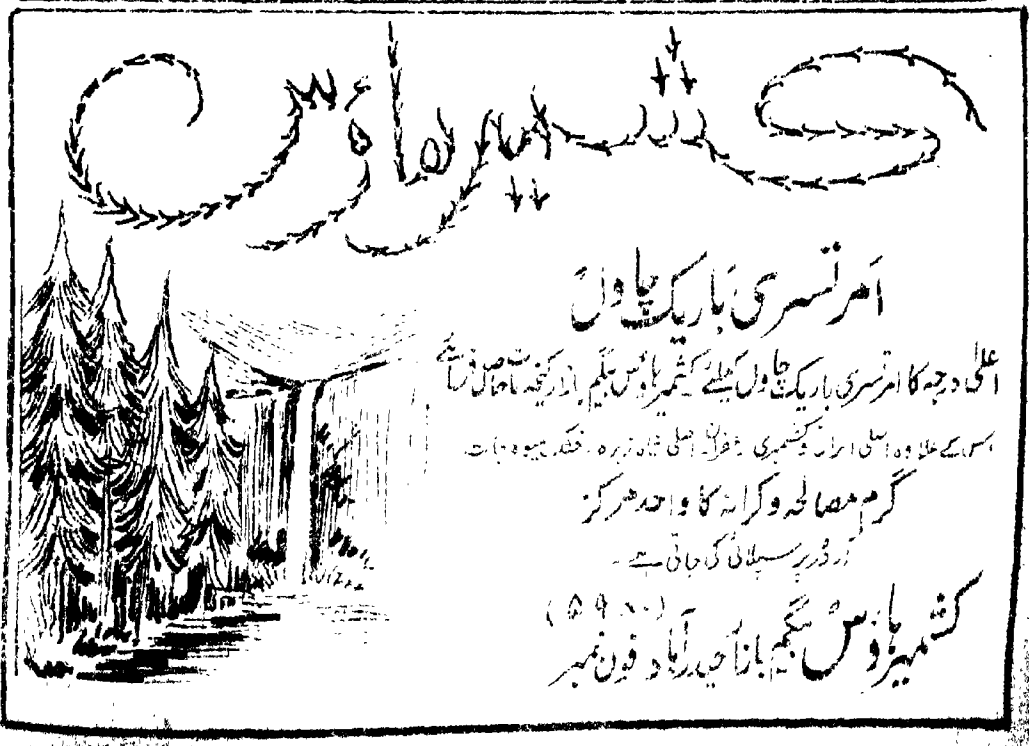 کشمیر ہاؤس
امرتسری باریک چاول
اعلیٰ درجہ کا امرتسری باریک چاول کیلئے کشمیر ہاؤس بیگم بازار
اس کے علاوہ اصلی ایرانی و کشمیری زعفران اصلی شاہ زیرہ، خشک میوہ جات،
گرم مصالحہ و کرانہ کا واحد مرکز
آرڈر پر سپلائی کی جاتی ہے۔
کشمیر ہاؤس بیگم بازار حیدرآباد فون نمبر